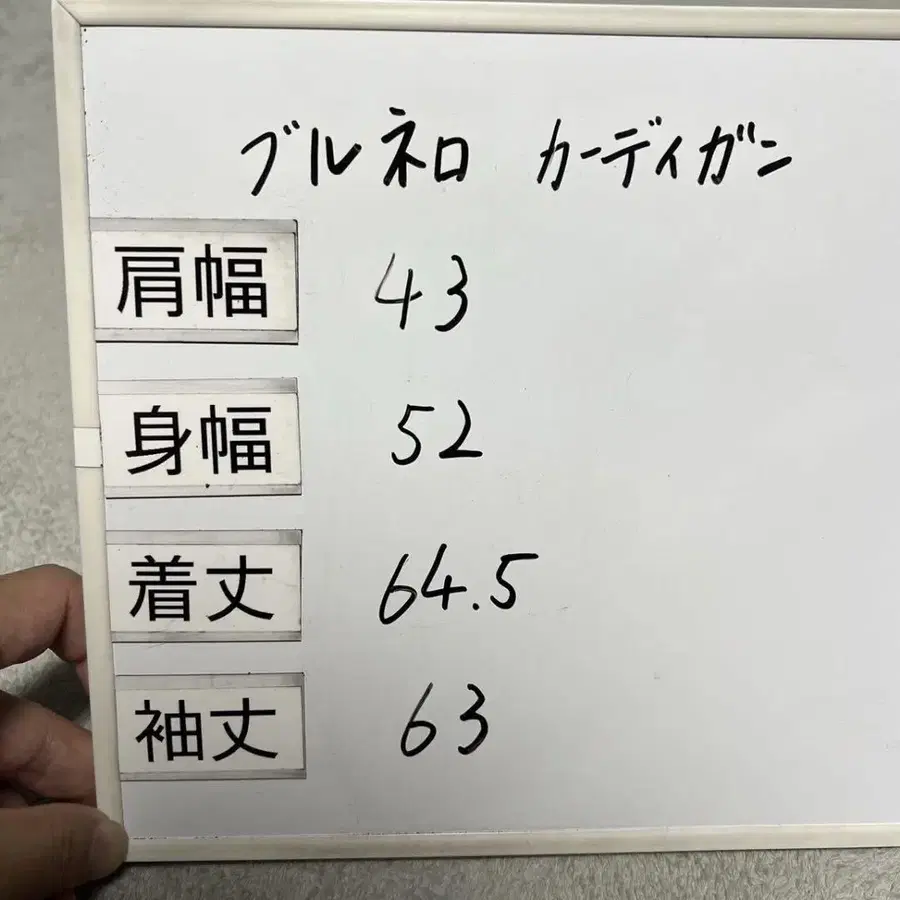 ブルネロ カーディガン
肩幅 43
身幅 52
着丈 64.5
袖丈 63